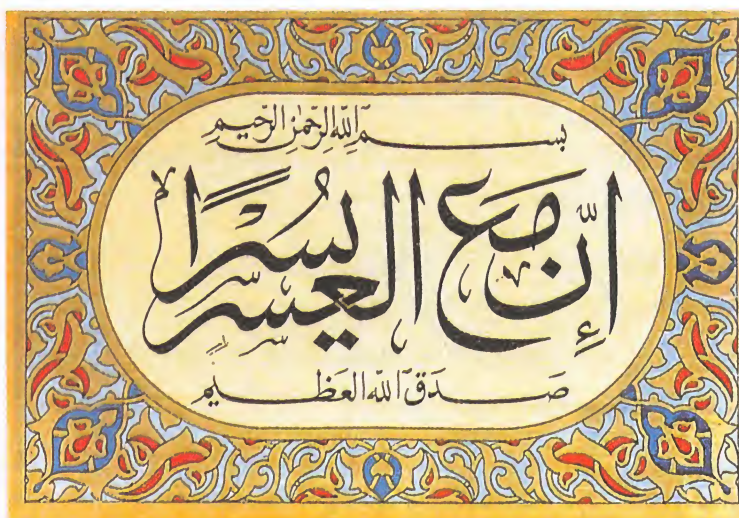 بسم الله الرحمن الرحيم
إنّ مع العسر يُسرًا
صدق الله العظيم